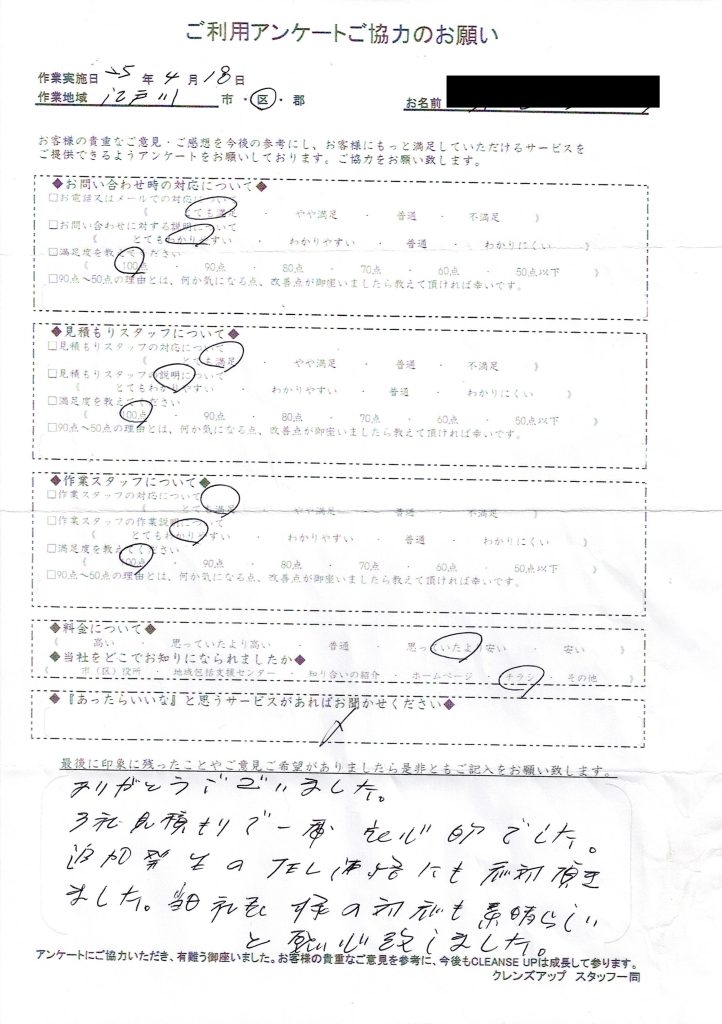 ご利用アンケートご協力のお願い
作業実施日 25 年 4 月 18 日
作業地域 江戸川 市・区・郡 お名前
お客様の貴重なご意見・ご感想を今後の参考にし、お客様にもっと満足していただけるサービスを
ご提供できるようアンケートをお願いしております。ご協力をお願い致します。
◆お問い合わせ時の対応について◆
□お電話又はメールでの対応について
《 とても満足 ・ やや満足 ・ 普通 ・ 不満足 》
□お問い合わせに対する説明について
《 とてもわかりやすい ・ わかりやすい ・ 普通 ・ わかりにくい 》
□満足度を教えてください
《 100点 ・ 90点 ・ 80点 ・ 70点 ・ 60点 ・ 50点以下 》
□90点～50点の理由とは、何か気になる点、改善点が御座いましたら教えて頂ければ幸いです。
◆見積もりスタッフについて◆
□見積もりスタッフの対応について
《 とても満足 ・ やや満足 ・ 普通 ・ 不満足 》
□見積もりスタッフの説明について
《 とてもわかりやすい ・ わかりやすい ・ 普通 ・ わかりにくい 》
□満足度を教えてください
《 100点 ・ 90点 ・ 80点 ・ 70点 ・ 60点 ・ 50点以下 》
□90点～50点の理由とは、何か気になる点、改善点が御座いましたら教えて頂ければ幸いです。
◆作業スタッフについて◆
□作業スタッフの対応について
《 とても満足 ・ やや満足 ・ 普通 ・ 不満足 》
□作業スタッフの作業説明について
《 とてもわかりやすい ・ わかりやすい ・ 普通 ・ わかりにくい 》
□満足度を教えてください
《 100点 ・ 90点 ・ 80点 ・ 70点 ・ 60点 ・ 50点以下 》
□90点～50点の理由とは、何か気になる点、改善点が御座いましたら教えて頂ければ幸いです。
◆料金について◆
《 高い ・ 思っていたより高い ・ 普通 ・ 思っていたより安い ・ 安い 》
◆当社をどこでお知りになられましたか◆
《 市（区）役所 ・ 地域包括支援センター ・ 知り合いの紹介 ・ ホームページ ・ チラシ ・ その他 》
◆『あったらいいな』と思うサービスがあればお聞かせください◆
最後に印象に残ったことやご意見ご希望がありましたら是非ともご記入をお願い致します。
ありがとうございました。
3社見積もりで一番良心的でした。
追加発生のTEL連絡にも応対頂き
ました。 様の対応も素晴らしい
と 心致しました。
アンケートにご協力いただき、有難う御座いました。お客様の貴重なご意見を参考に、今後もCLEANSE UPは成長して参ります。
クレンズアップ スタッフ一同